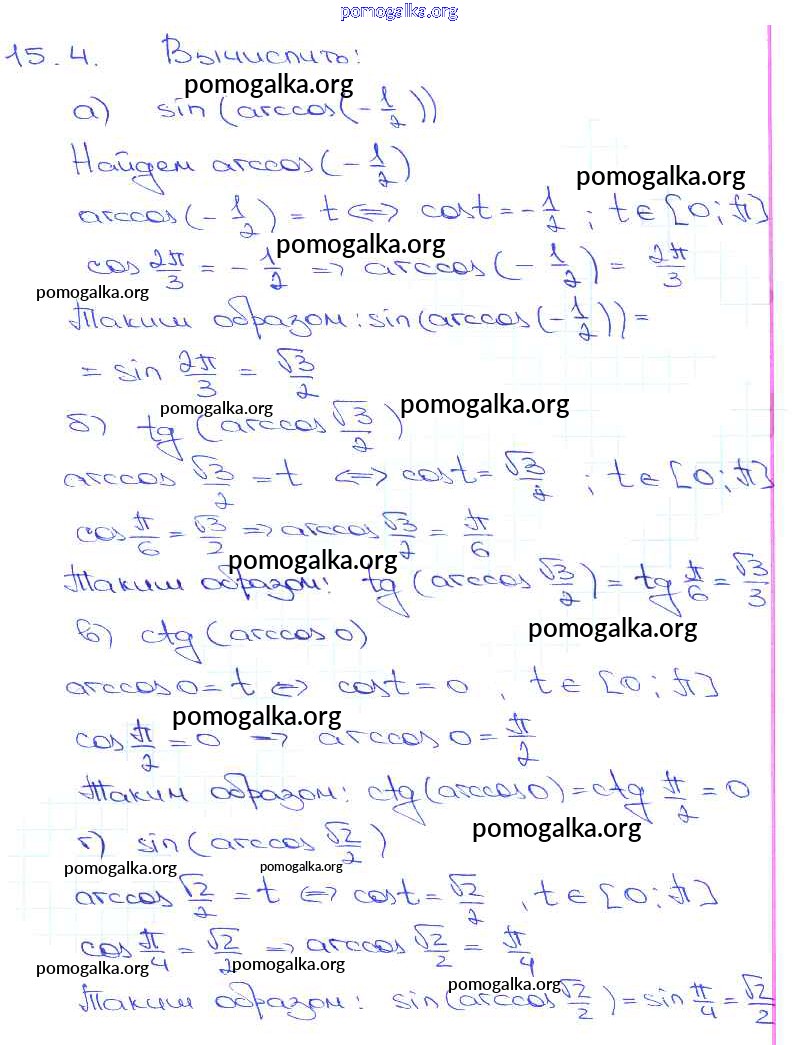 pomogalka.org
15.4. Вычислить:
pomogalka.org
а) sin(arccos(-1/2))
Найдем arccos(-1/2)
pomogalka.org
arccos(-1/2) = t <=> cost = -1/2 ; t∈[0;π]
pomogalka.org
cos 2π/3 = -1/2 => arccos(-1/2) = 2π/3
pomogalka.org
Таким образом: sin(arccos(-1/2)) =
= sin 2π/3 = √3/2
pomogalka.org pomogalka.org
б) tg(arccos √3/2)
arccos √3/2 = t <=> cost = √3/2 ; t∈[0;π]
cos π/6 = √3/2 => arccos √3/2 = π/6
pomogalka.org
Таким образом: tg(arccos √3/2) = tg π/6 = √3/3
в) ctg(arccos 0)
pomogalka.org
arccos 0 = t <=> cost = 0 , t∈[0;π]
pomogalka.org
cos π/2 = 0 => arccos 0 = π/2
Таким образом: ctg(arccos 0) = ctg π/2 = 0
pomogalka.org
г) sin(arccos √2/2)
pomogalka.org pomogalka.org
arccos √2/2 = t <=> cost = √2/2 , t∈[0;π]
cos π/4 = √2/2 => arccos √2/2 = π/4
pomogalka.org pomogalka.org
pomogalka.org
Таким образом: sin(arccos √2/2) = sin π/4 = √2/2